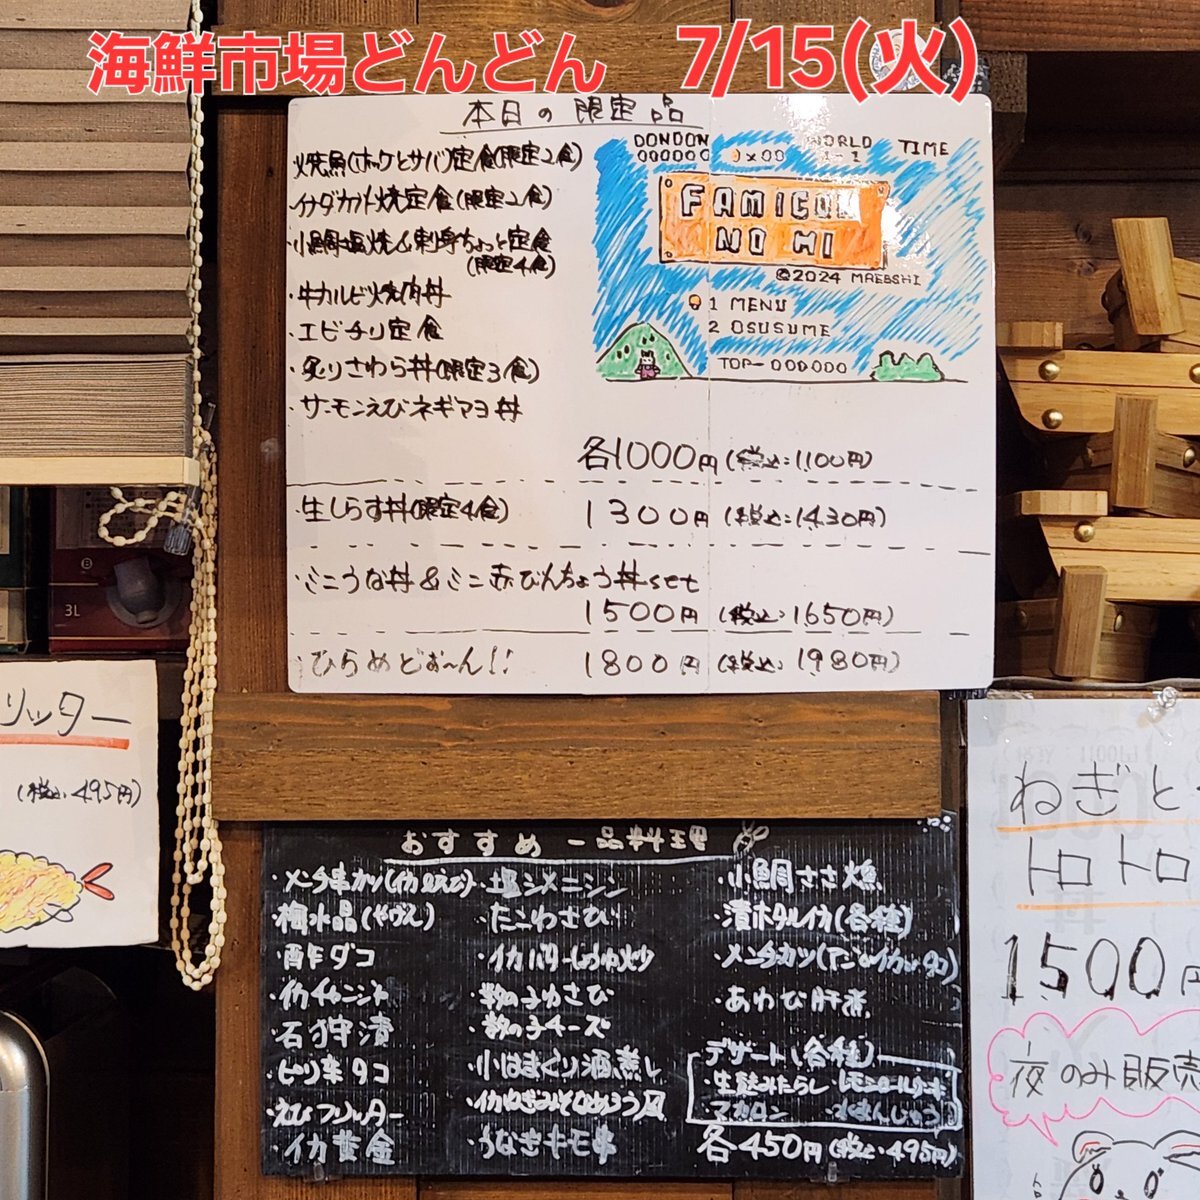 海鮮市場どんどん 7/15(火)
本日の限定品
・焼魚(ホッケとサバ)定食(限定2食)
・イナダカブト焼定食(限定2食)
・小鯛塩焼&刺身ちょっと定食
(限定4食)
・牛カルビ焼肉丼
・エビチリ定食
・炙りさわら丼(限定3食)
・サーモンえびネギマヨ丼
各1000円(税込:1100円)
・生しらす丼(限定4食) 1300円(税込:1430円)
・ミニうな丼&ミニ赤びんちょう丼set
1500円(税込:1650円)
・ひらめどぉ〜ん!! 1800円(税込:1980円)
DONDON WORLD TIME
000000 ×00 1-1
FAMICOM
NO HI
©2024 MAEBSHI
1 MENU
2 OSUSUME
TOP-000000
B
3L
リッター
(税込:495円)
おすすめ一品料理
・梅水晶(やげん)
・酢ダコ
・イカチャンジャ
・石狩漬
・ピリ辛タコ
・えびフリッター
・イカ黄金
・塩シメニシン
・たこわさび
・イカバターしょうゆ炒
・数の子わさび
・数の子チーズ
・小はまぐり酒蒸し
・うなぎキモ串
・小鯛ささ漬
・漬ホタルイカ(各種)
・あわび肝煮
デザート(各種)
・生どらみたらし ・レモンロールケーキ
・マカロン ・水まんじゅう
各450円(税込:495円)
ねぎと
トロトロ
1500円
夜のみ販売